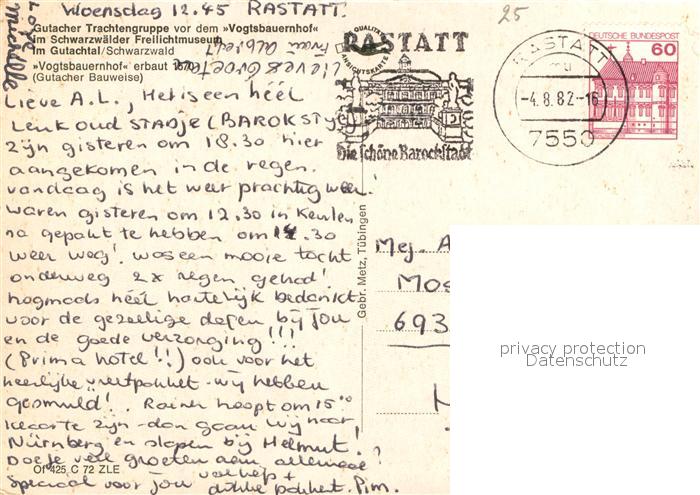 Woensdag 12.45 RASTATT.
25
Gutacher Trachtengruppe vor dem »Vogtsbauernhof«
im Schwarzwälder Freilichtmuseum
im Gutachtal/Schwarzwald
»Vogtsbauernhof« erbaut
(Gutacher Bauweise)
Lieve A.L., Het is een héél
Leuk oud STADJE (BAROKSTYL)
zijn gisteren om 18.30 hier
aangekomen in de regen.
vandaag is het weer prachtig weer!
waren gisteren om 12.30 in Keulen
na gepakt te hebben om 14.30
weer weg! was een mooie tocht
onderweg 2x regen gehad!
nogmaals héél hartelijk bedankt
voor de gezellige dagen bij jou
en de goede verzorging!!!
(Prima hotel!!) ook voor het
heerlijke vreetpakket - wij hebben
gesmuld! Rainer hoopt om 15⁰⁰
klaar te zijn - dan gaan wij naar
Nürnberg en slapen bij Helmut!
Doe je veel groeten aan allemaal
speciaal voor jou
dikke pakkert. Pim.
Of 425 C 72 ZLE
Love
Michelle
Lieve Groetjes
Frau
Gebr. Metz, Tübingen
RASTATT
Die schöne Barockstadt
RASTATT
mu
-4.8.82-16
7550
DEUTSCHE BUNDESPOST
60
Mej. A
693
privacy protection
Datenschutz